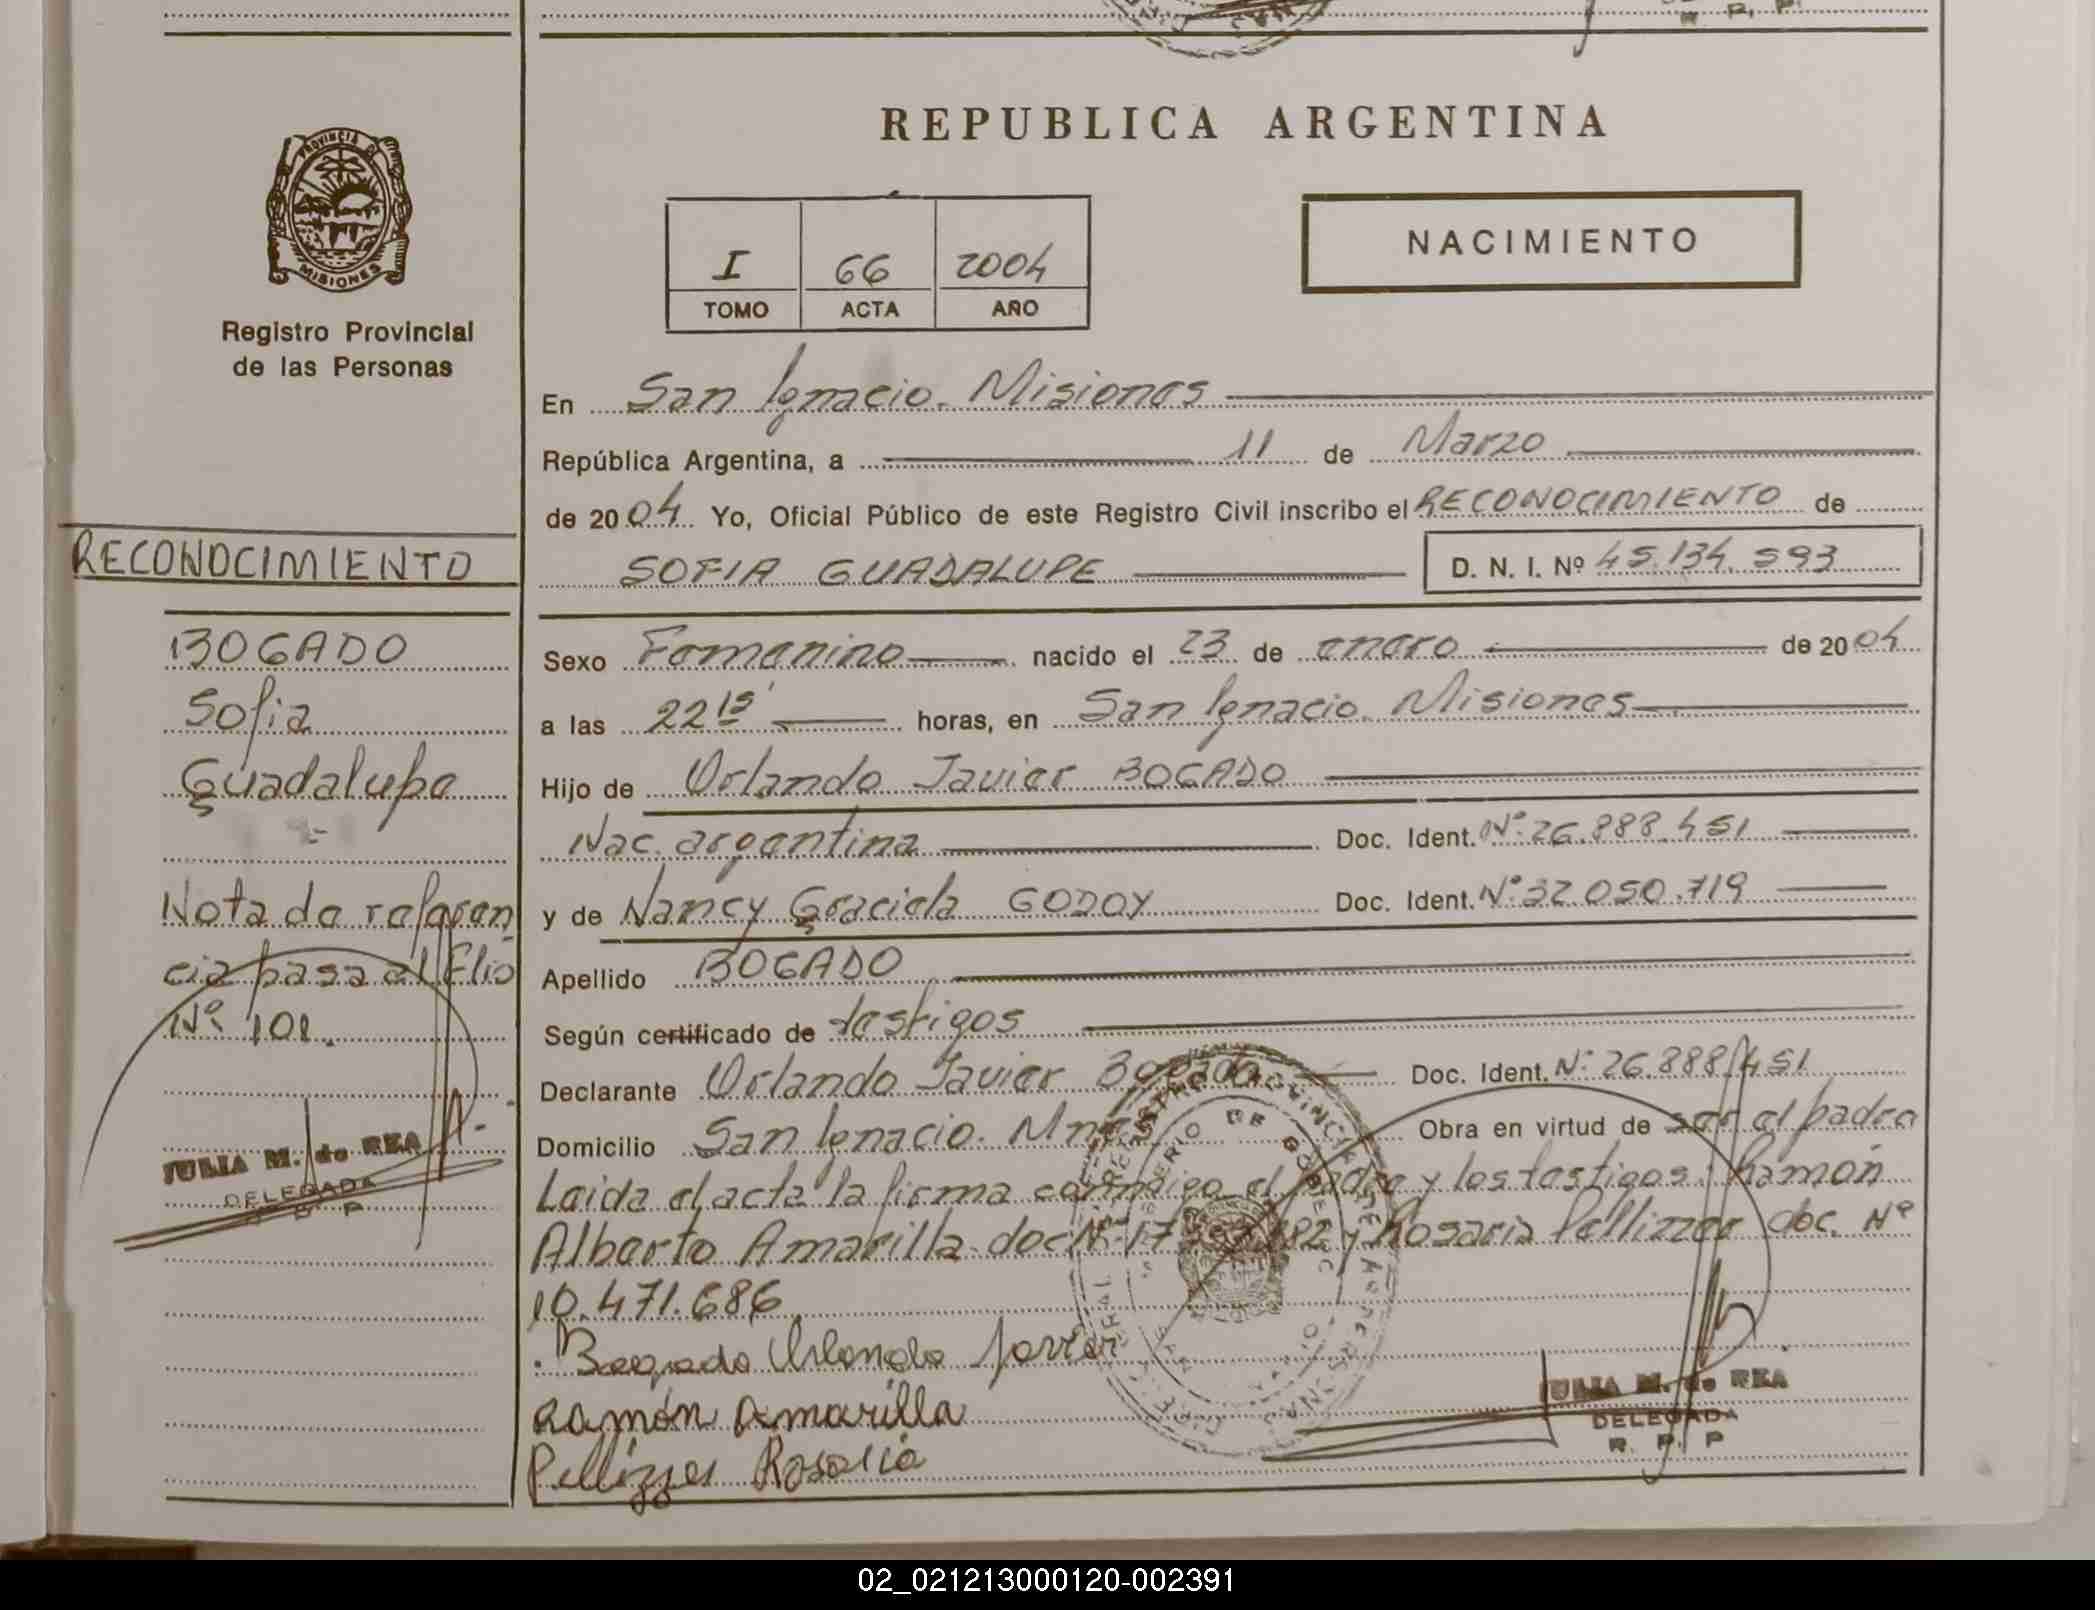 REPUBLICA ARGENTINA
PROVINCIA DE
MISIONES
Registro Provincial
de las Personas
I 66 2004
TOMO ACTA AÑO
NACIMIENTO
En San Ignacio. Misiones
República Argentina, a 11 de Marzo
de 2004 Yo, Oficial Público de este Registro Civil inscribo el RECONOCIMIENTO de
SOFIA GUADALUPE D. N. I. Nº 45.134.593
RECONOCIMIENTO
BOGADO
Sofia
Guadalupe
Nota de referen
cia pasa al folio
Nº 101.
JULIA M. de REA
DELEGADA
R. P. P
Sexo Femenino nacido el 23 de enero de 2004
a las 22 15 horas, en San Ignacio. Misiones
Hijo de Orlando Javier BOGADO
Nac. argentina Doc. Ident. Nº 26.888.451
y de Nancy Graciela GODOY Doc. Ident. Nº 32.050.719
Apellido BOGADO
Según certificado de testigos
Declarante Orlando Javier Bogado Doc. Ident. Nº 26.888.451
Domicilio San Ignacio. Mnes Obra en virtud de ser el padre
Leida el acta la firma conmigo el padre y los testigos: Ramón
Alberto Amarilla doc Nº 17 182 y Rosaria Pellizzer doc. Nº
10.471.686
Bogado Orlando Javier
Ramón Amarilla
Pellizzer Rosaria
JULIA M. de REA
DELEGADA
R. P. P
02_021213000120-002391